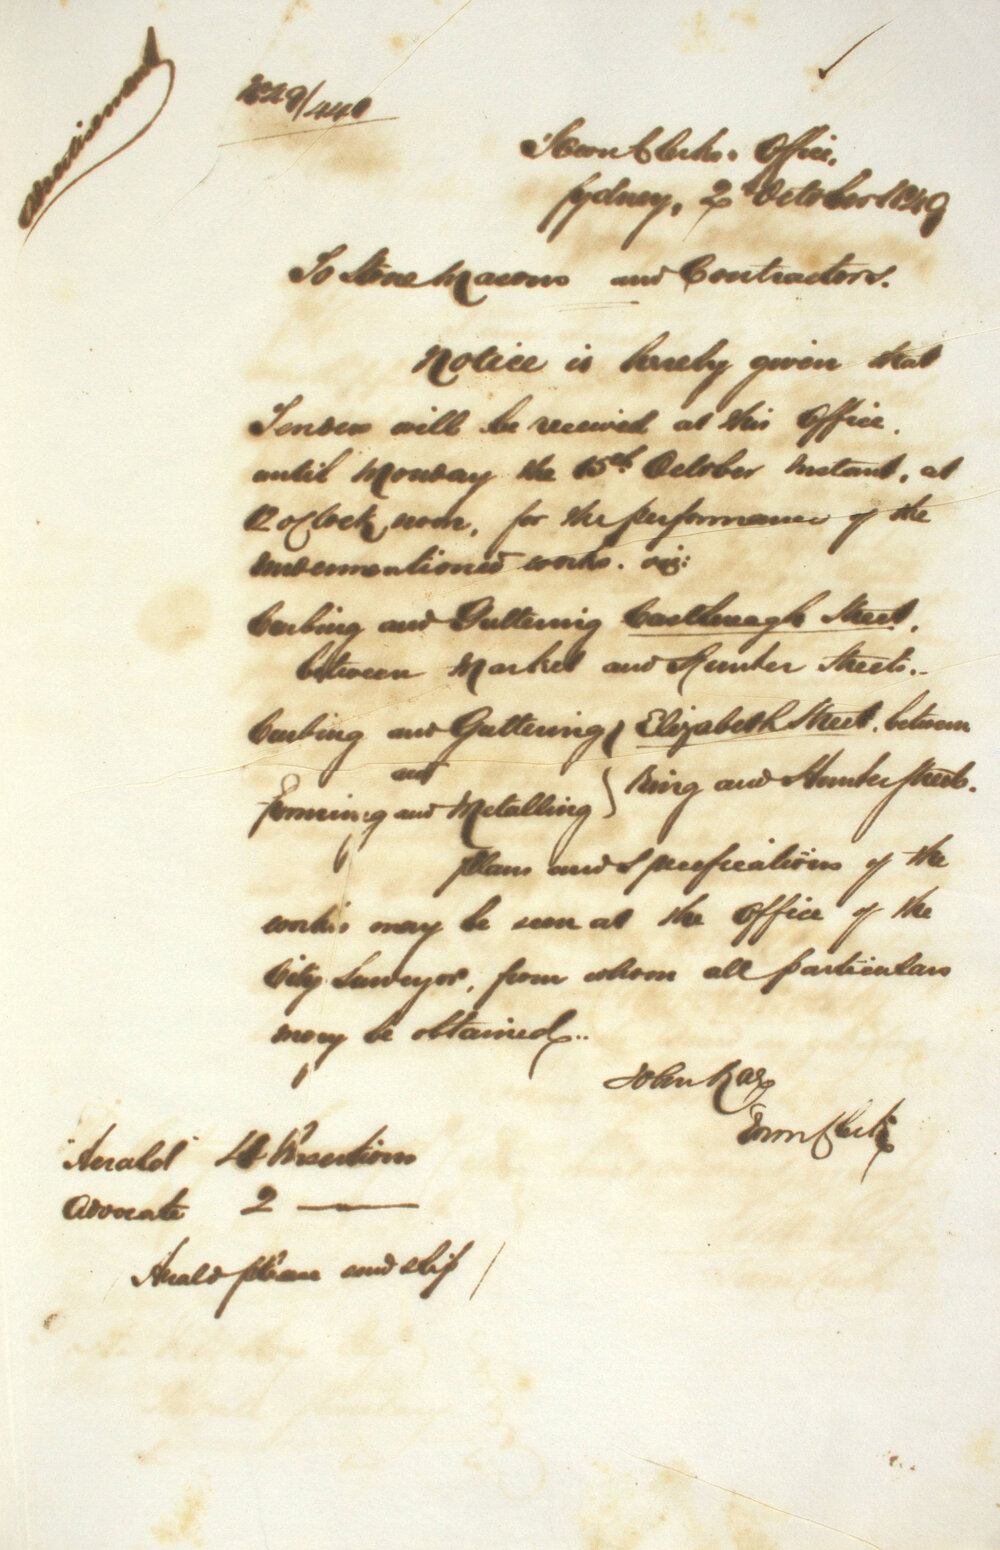 Advertisement
Town Clerks Office,
Sydney, 2d October 1849
To Stone Masons and Contractors.
Notice is hereby given that
Tenders will be received at this Office,
until Monday the 15th October Instant, at
12 o'Clock, noon, for the performance of the
undermentioned works. viz:
Curbing and Guttering Castlereagh Street,
between Market and Hunter Streets..
Curbing and Guttering } Elizabeth Street, between
and
Forming and Metalling } King and Hunter Streets.
Plans and Specifications of the
works may be seen at the Office of the
City Surveyor, from whom all particulars
may be obtained..
John Rae
Town Clerk
"Herald" 4 Insertions
Advocate 2 ——
Herald please send slip